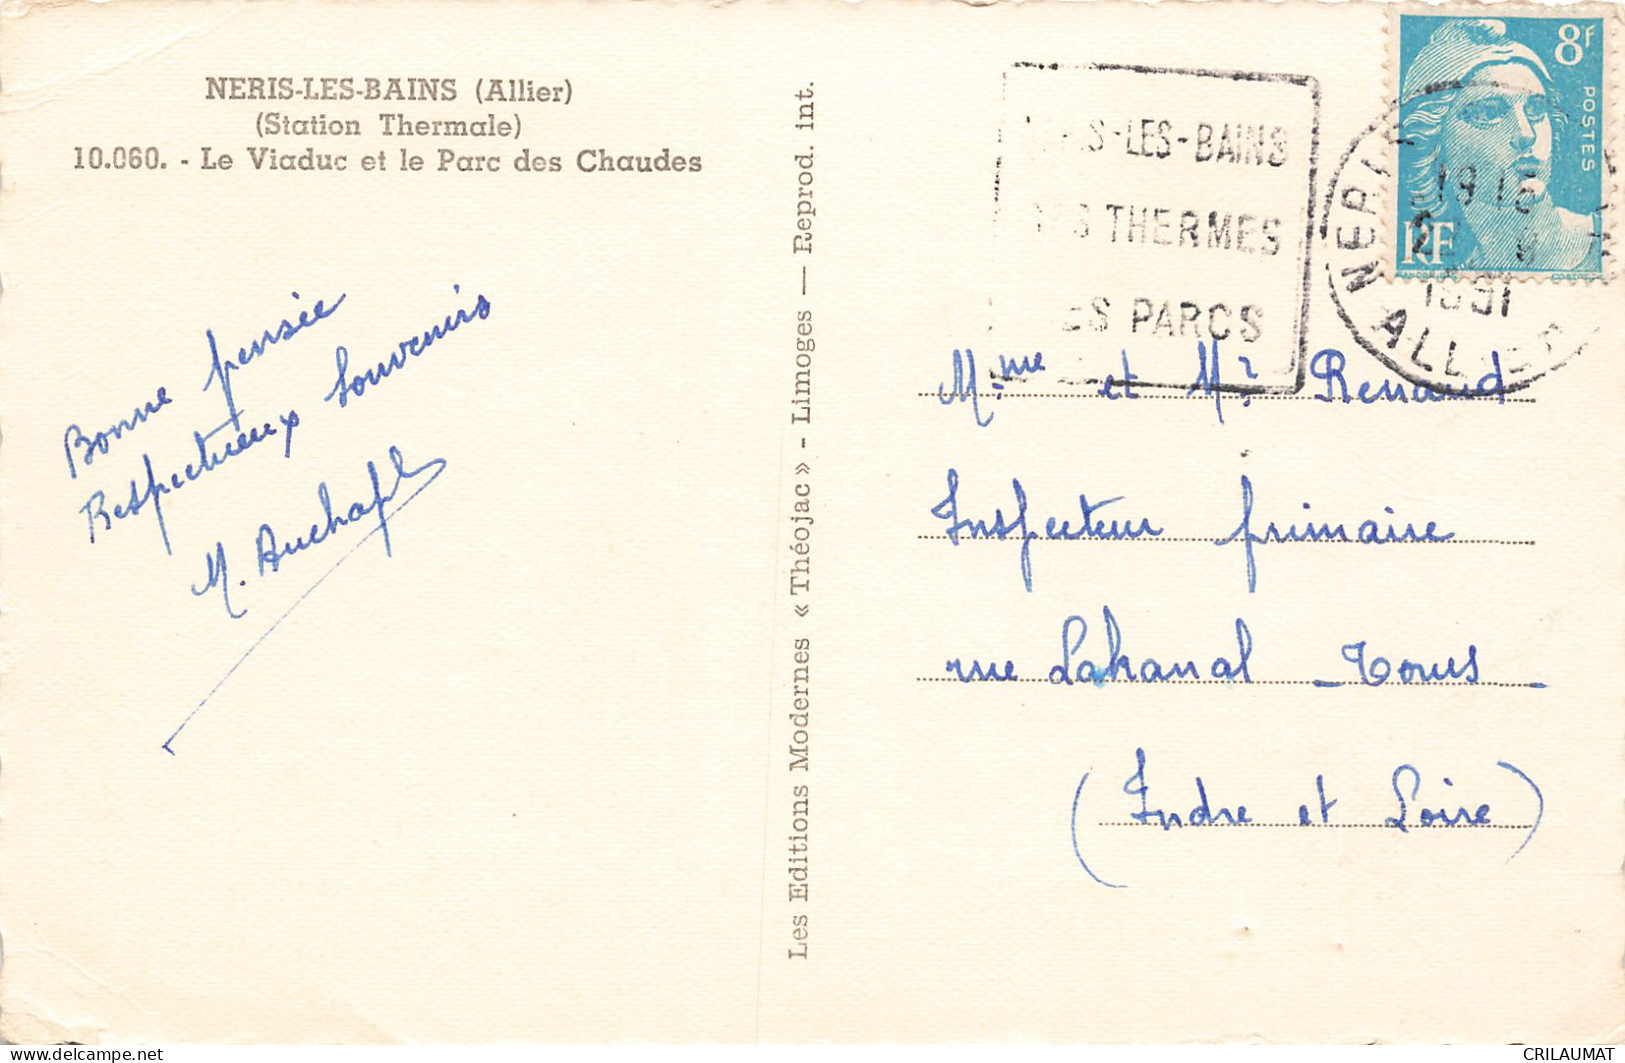 NERIS-LES-BAINS (Allier)
(Station Thermale)
10.060. - Le Viaduc et le Parc des Chaudes
Bonne pensée
Respectueux Souvenirs
Les Editions Modernes « Théojac » - Limoges — Reprod. int.
-LES-BAINS
THERMES
PARCS
8f
POSTES
RF
NERIS
ALLIER
1951
Mme et Mr Renaud
Inspecteur primaire
rue Lakanal - Tours -
(Indre et Loire)
CRILAUMAT